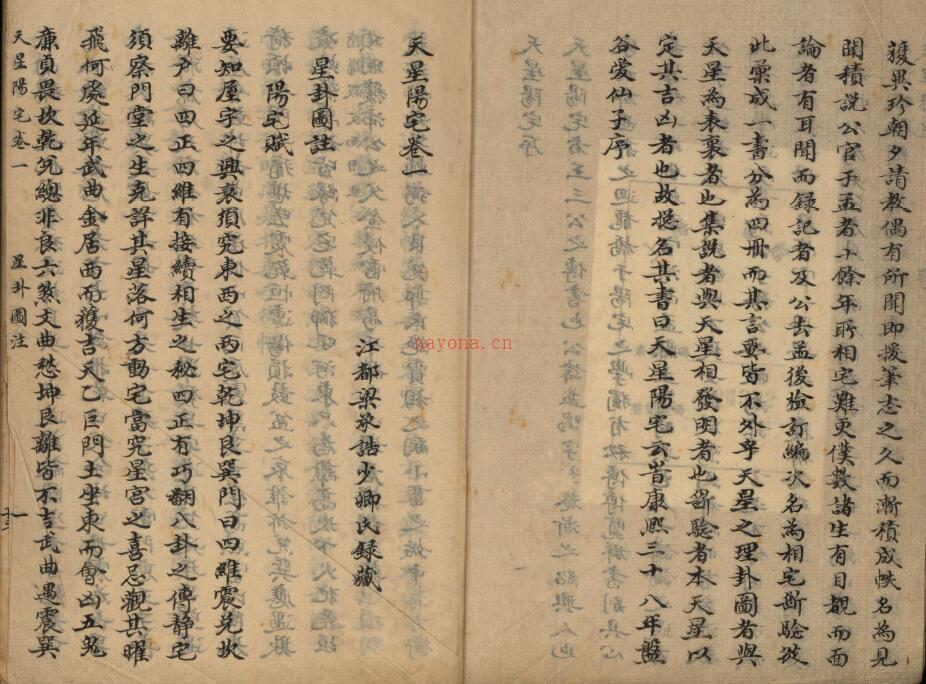 獲異珍朝夕請教偶有所聞即援筆志之久而漸積成帙名為見
聞積說公官于孟者十餘年所相宅難更僕數諸生有目覩而面
論者有耳聞而錄記者及公去孟後檢訂編次名為相宅斷驗從
此彙成一書分為四冊而其言要皆不外乎天星之理卦圖者與
天星為表裏者也集說者與天星相發明者也斷驗者本天星以
定其吉凶者也故總名其書曰天星陽宅云峕康熙三十八年盤
谷愛仙子序
天星陽宅卷一
江都梁承誥少卿氏錄藏
天星卦圖註
陽宅賦
要知屋宇之興衰須究東西之兩宅乾坤艮巽門曰四維震兌坎
離户曰四正四維有接續相生之秘四正有巧翻八卦之傳靜宅
須察門堂之生克詳其星落何方動宅當究星宮之喜忌觀其曜
飛何處延年武曲金居西而獲吉天乙巨門土坐東而會凶五鬼
廉貞畏坎乾兌總非良六煞文曲愁坤艮離皆不吉武曲遇震巽
天星陽宅卷一
星卦圖注
一
nayona.cn